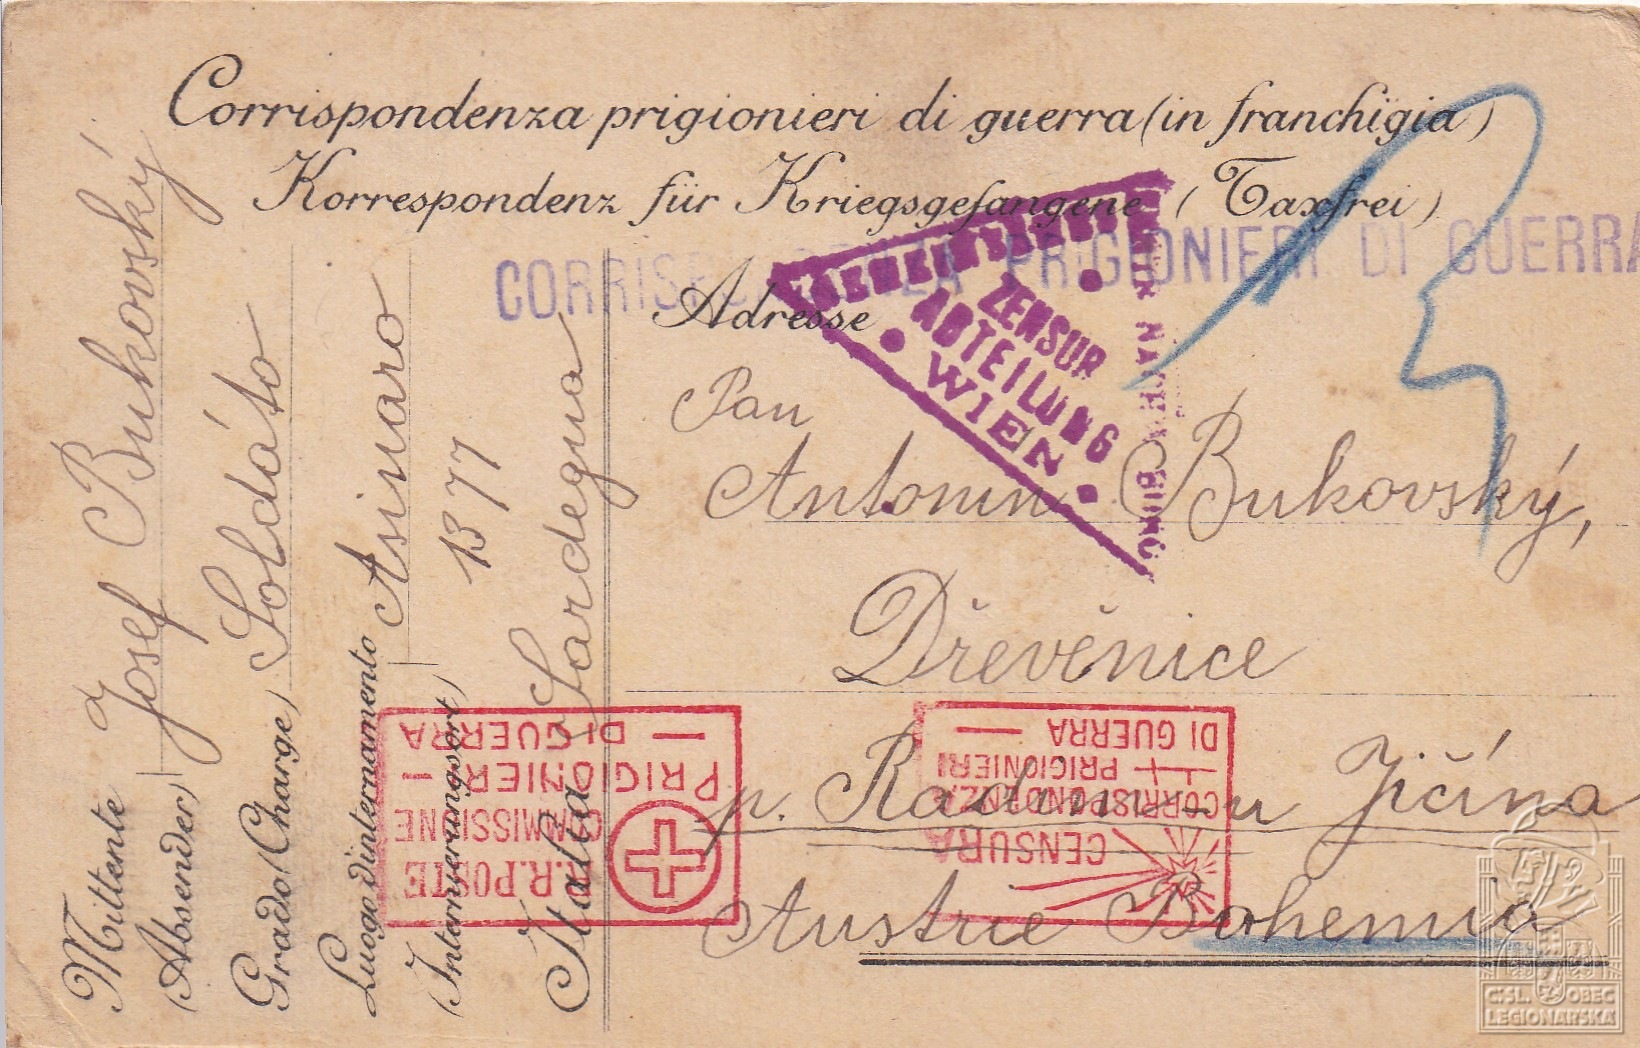 Corrispondenza prigionieri di guerra (in franchigia)
Korrespondenz für Kriegsgefangene (Taxfrei)
CORRISPONDENZA PRIGIONIERI DI GUERRA
Adresse
ZENSUR
ABTEILUNG
WIEN
Pan
Antonín Bukovský,
Dřevěnice
p. Radim u Jičína
Austrie Bohemia
Mittente Josef Bukovský
(Absender)
Grado (Charge) Soldáto
Luogo d'internamento Asinaro
(Internierungsort) 1377
Sardegna
Italia
R.R. POSTE
COMMISSIONE
PRIGIONIERI
DI GUERRA
CENSURA
CORRISPONDENZA
PRIGIONIERI
DI GUERRA
ČSL. OBEC
LEGIONÁŘSKÁ